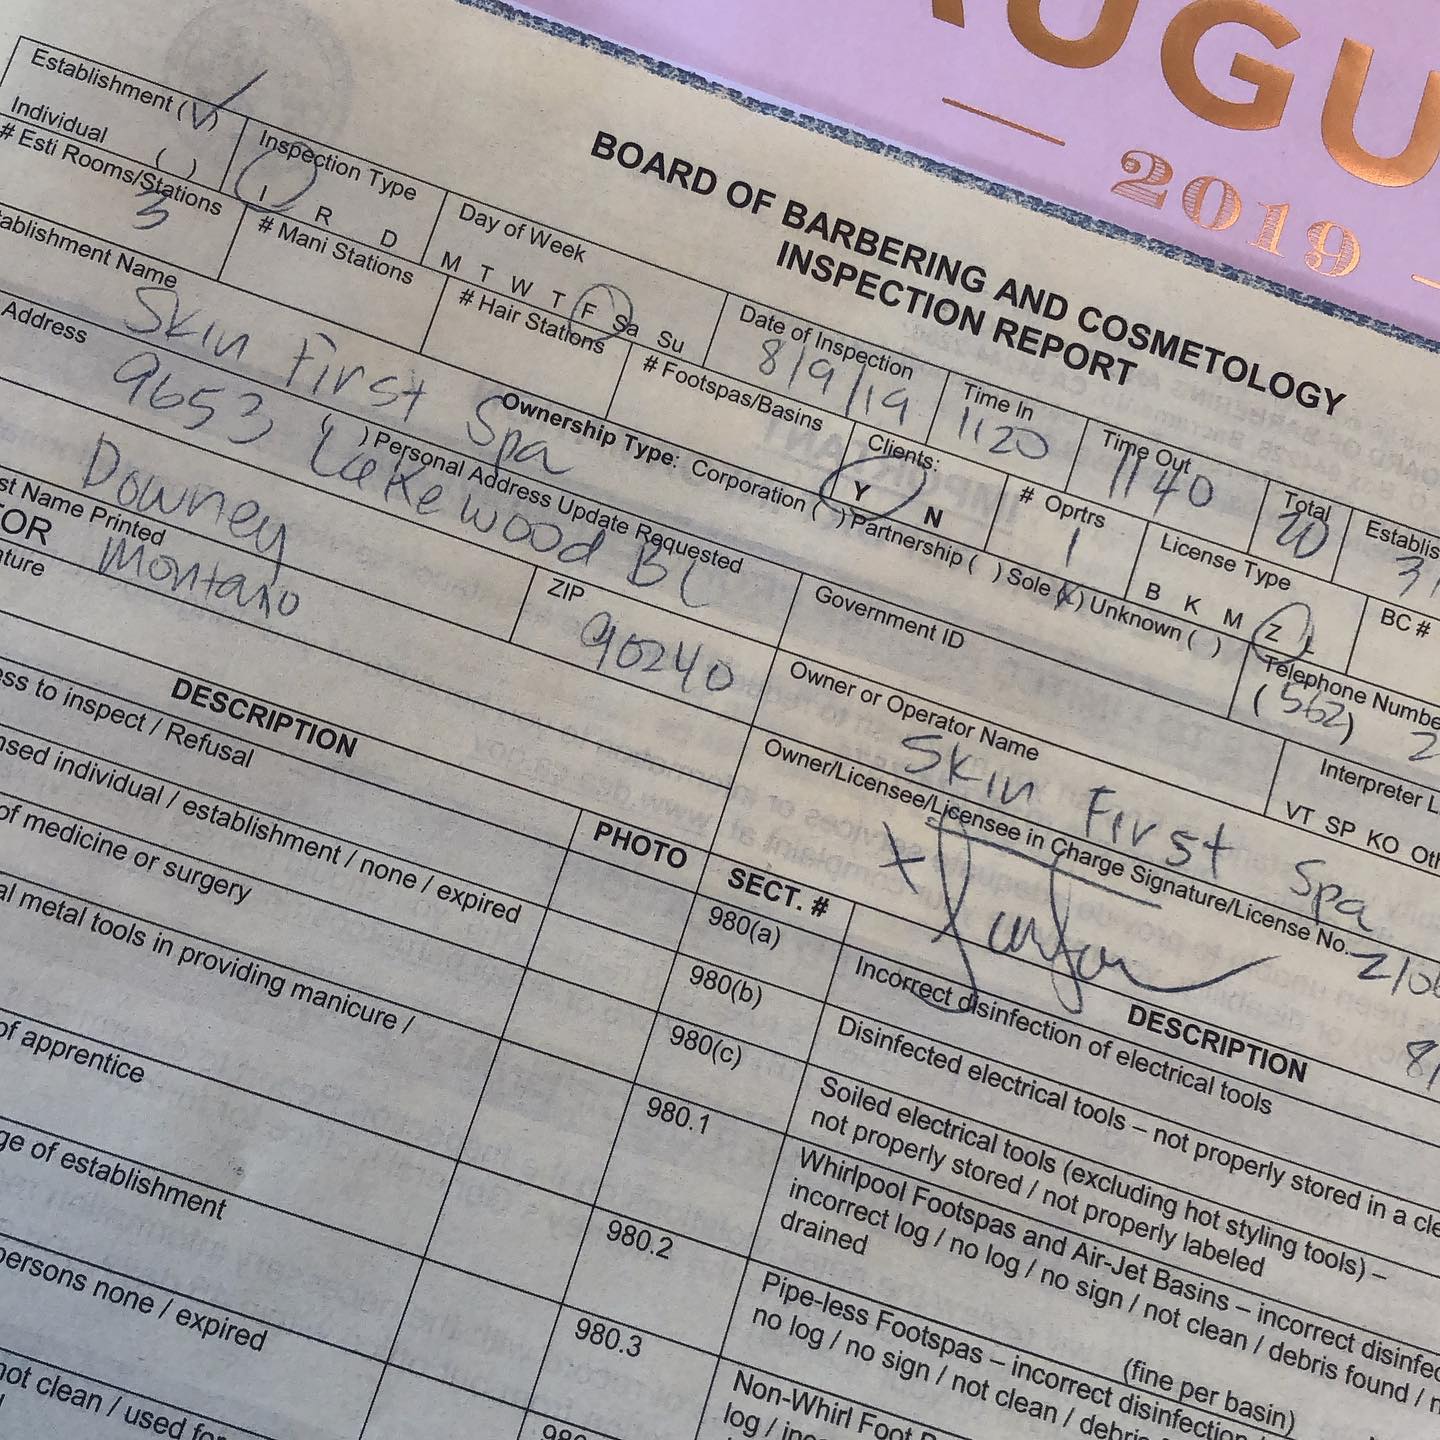 AUGU
2019
BOARD OF BARBERING AND COSMETOLOGY
INSPECTION REPORT
Establishment (✓)
Individual ( )
Inspection Type
I R D
Day of Week
M T W T F Sa Su
Date of Inspection
8/9/19
Time In
1120
Time Out
1140
Total
20
# Esti Rooms/Stations
3
# Mani Stations
# Hair Stations
# Footspas/Basins
Clients:
Y N
# Oprtrs
1
License Type
B K M Z E
BC #
Establishment Name
Skin First Spa
Ownership Type: Corporation ( ) Partnership ( ) Sole (x) Unknown ( )
Telephone Numbe
(562)
Address
( ) Personal Address Update Requested
9653 Lakewood Bl
Downey
ZIP
90240
Government ID
Interpreter L
VT SP KO Oth
st Name Printed
Montano
TOR
ature
Owner or Operator Name
Skin First Spa
Owner/Licensee/Licensee in Charge Signature/License No.
DESCRIPTION
PHOTO
SECT. #
DESCRIPTION
ess to inspect / Refusal
nsed individual / establishment / none / expired
of medicine or surgery
al metal tools in providing manicure /
of apprentice
ge of establishment
persons none / expired
not clean / used for
980(a)
Incorrect disinfection of electrical tools
980(b)
Disinfected electrical tools – not properly stored in a cle
980(c)
Soiled electrical tools (excluding hot styling tools) –
not properly stored / not properly labeled
980.1
Whirlpool Footspas and Air-Jet Basins – incorrect disinfec
incorrect log / no log / no sign / not clean / debris found / n
drained
(fine per basin)
980.2
Pipe-less Footspas – incorrect disinfection /
no log / no sign / not clean / debris
980.3
Non-Whirl Foot
log / inc
980